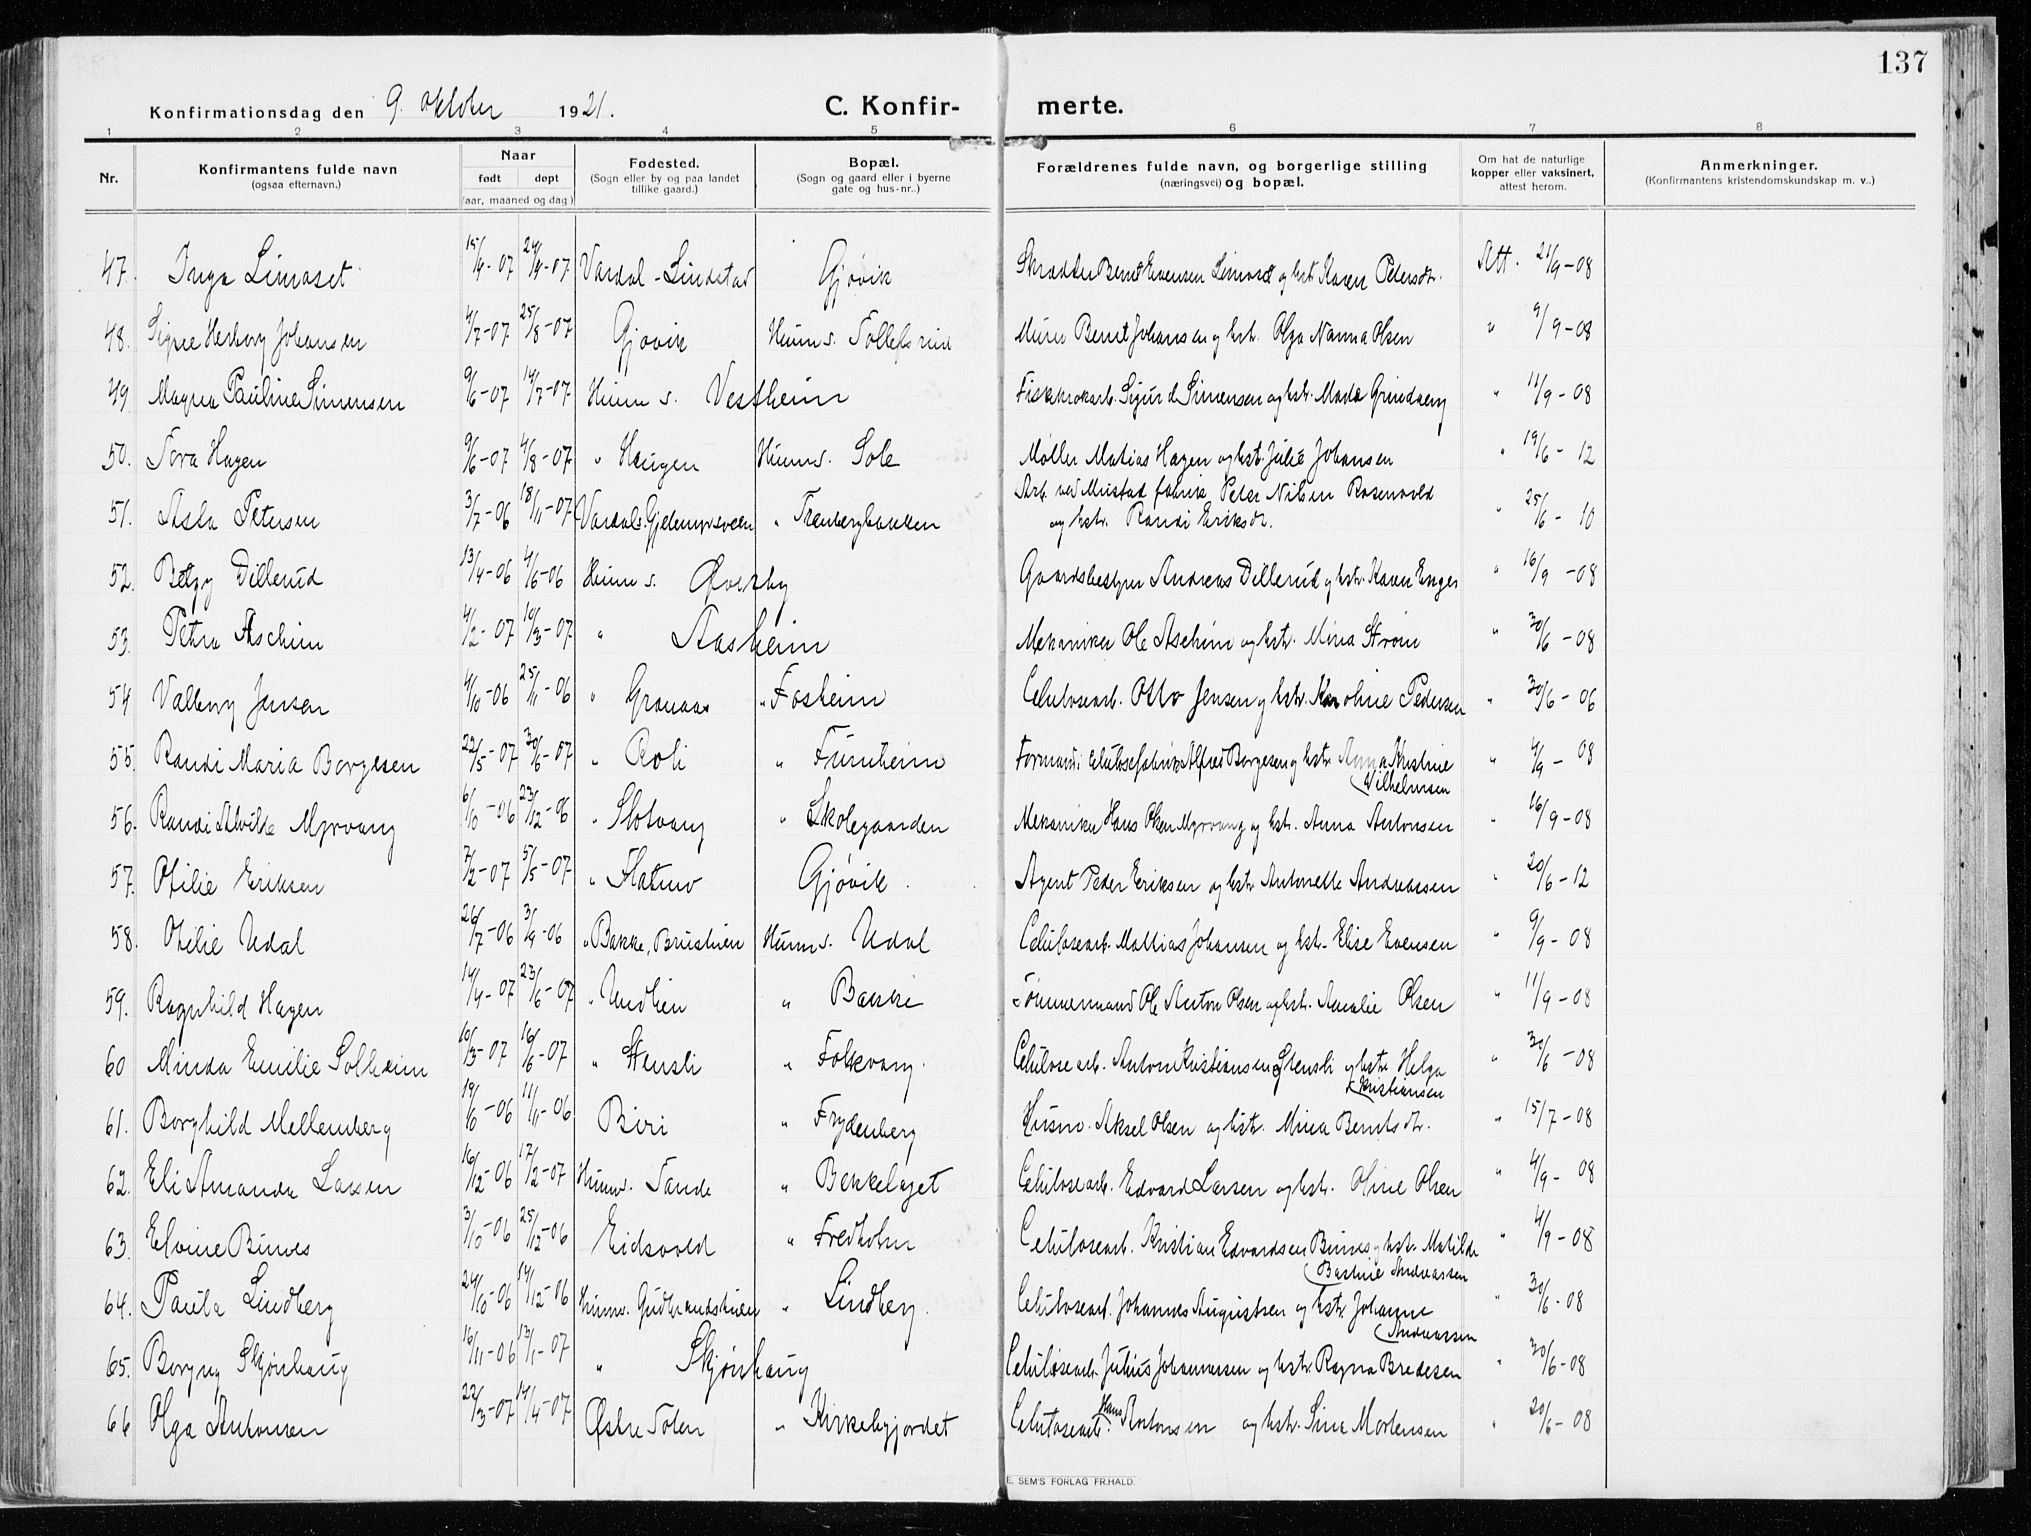 137
Konfirmationsdag den 9. oktober 1921.
C. Konfir-
merte.
1 2 3 4 5 6 7 8
Nr.
Konfirmantens fulde navn
(ogsaa efternavn.)
Naar
født døpt
(aar, maaned og dag)
Fødested.
(Sogn eller by og paa landet
tillike gaard.)
Bopæl.
(Sogn og gaard eller i byerne
gate og hus-nr..)
Forældrenes fulde navn, og borgerlige stilling
(næringsvei) og bopæl.
Om hat de naturlige
kopper eller vaksinert,
attest herom.
Anmerkninger.
(Konfirmantens kristendomskundskap m. v..)
47. Inga Limoset 15/4-07 24/4-07 Vardal - Lindstad Gjøvik Skrædder Bernt Evensen Limoset og hst. Karen Petersdtr. Att. 21/9-08
48. Signe Herborg Johansen 4/7-07 25/8-07 Gjøvik Hunns. Tollefsrud Murer Bernt Johansen og hst. Olga Nanna Olsen " 9/9-08
49 Magna Pauline Simensen 9/6-07 14/7-07 Hunns. Vestheim Fiskkrokarb. Sigurd Simensen og hst. Moda Grindberg " 11/9-08
50. Tora Hagen 9/6-07 4/8-07 " Haugen Hunns. Sole Møller Matias Hagen og hst. Julie Johansen " 19/6-12
51. Asla Petersen 3/7-06 18/11-07 Vardals. Gjelemyrsveen " Trenbergbakken Arb. ved Mustad fabrik Peter Nilsen Rosenvold
og hst. Randi Eriksdtr. " 25/6-10
52. Betzy Dillerud 13/4-06 4/6-06 Hunns. Øverby Gaardsbestyrer Andreas Dillerud og hst. Karen Enger " 16/9-08
53. Petra Ascheim 4/2-07 10/3-07 " Aasheim Mekaniker Ole Ascheim og hst. Mina Strøm " 30/6-08
54 Valborg Jensen 4/10-06 25/11-06 " Granaas " Fosheim Celulosearb. Otto Jensen og hst. Karoline Pedersen " 30/6-06
55. Randi Maria Borgesen 22/5-07 30/6-07 " Roli " Furuheim Formand i celulosefabrik Alfred Borgesen og hst. Anna Kristine
Wilhelmsen " 4/9-08
56. Randi Alvilde Myrvang 6/10-06 23/12-06 " Slotvang " Skolegaarden Mekaniker Hans Olsen Myrvang og hst. Anna Antonsen " 16/9-08
57. Otilie Eriksen 7/2-07 5/5-07 " Flatmo Gjøvik. Agent Peder Eriksen og hst. Antonette Andreassen " 20/6-12
58. Otilie Udal 26/7-06 3/9-06 " Bakke, Brustuen Hunns. Udal Celulosearb. Mathias Johansen og hst. Elise Evensen " 9/9-08
59. Ragnhild Hagen 14/4-07 23/6-07 " Undlien " Bakke Tømmermand Ole Anton Olsen og hst. Amalie Olsen " 11/9-08
60 Minda Emilie Solheim 10/3-07 16/6-07 " Stensli " Folkvang. Celulosearb. Anton Kristiansen Stensli og hst. Helga
Kristiansen " 30/6-08
61. Borghild Mellemberg 19/6-06 11/11-06 Biri " Frydenberg Husm. Aksel Olsen og hst. Mina Berntsdtr. " 15/7-08
62. Eli Amanda Larsen 16/12-06 17/2-07 Hunns. Sande " Bekkelaget Celulosearb. Edvard Larsen og hst. Oline Olsen " 4/9-08
63. Elvine Binnes 3/10-06 25/12-06 Eidsvold " Fredholm Celulosearb. Kristian Edvardsen Binnes og hst. Matilde
Bastine Andreassen " 4/9-08
64. Paula Lindberg 24/10-06 14/12-06 Hunns. Gudbrandstuen " Lindberg. Celulosearb. Johannes Augustsen og hst. Johanne
Andreassen " 30/6-08
65. Borgny Skjønhaug 16/11-06 13/1-07 " Skjønhaug Celulosearb. Julius Johannessen og hst. Ragna Bredesen " 30/6-08
66 Olga Antonsen 22/3-07 14/4-07 Østre Toten " Kirkebygjordet Celulosearb. Hans Antonsen og hst. Sina Mortensen " 20/6-08
E. SEM'S FORLAG FR.HALD.